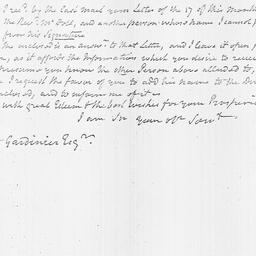 I rec'd by the last Mail your Letter of the 17 of this Month
the Rev'd Mr and another person whose name I cannot
from his Signature
The inclosed is an answer to that Letter, and I leave it open
as it affords the Information which you desire to
presume you know the other Person above alluded to,
I request the favor of you to add his name to the
and to inform me of it
with great Esteem & the best Wishes for your Prosperity
I am Sir Your Ob. Serv't
Gardinier Esqr.